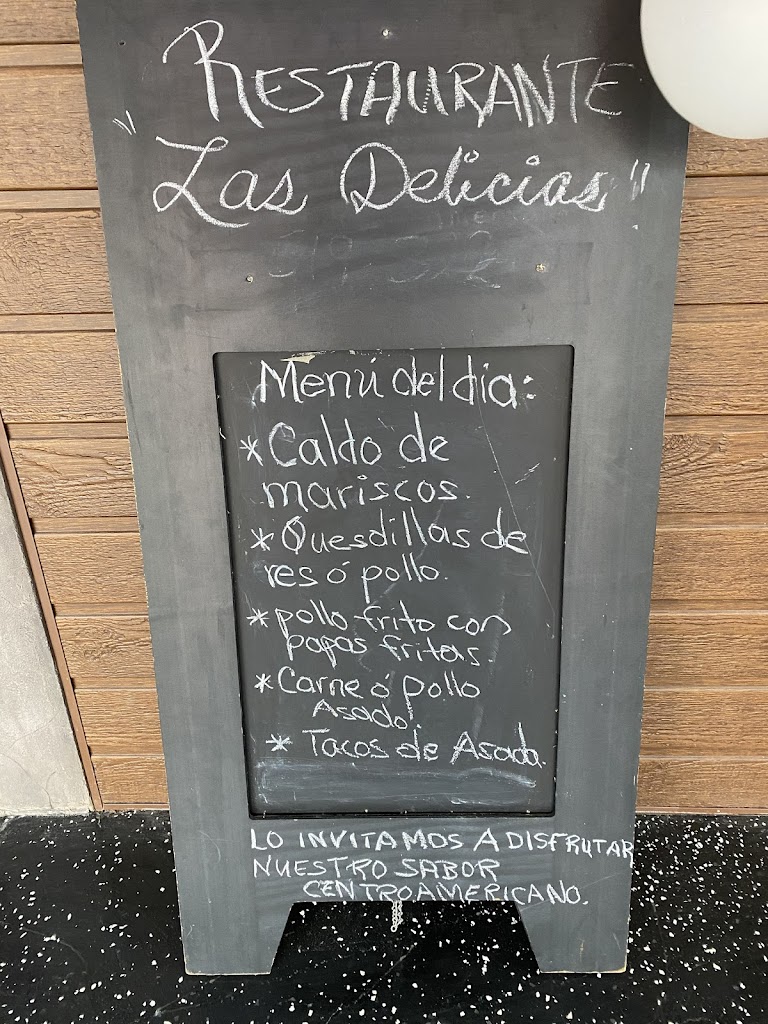 RESTAURANTE
"Las Delicias"
Menú del dia:
*Caldo de
mariscos.
*Quesdillas de
res ó pollo.
*pollo frito con
papas fritas.
*Carne ó pollo
Asado!
* Tacos de Asada.
LO INVITAMOS A DISFRUTAR
NUESTRO SABOR
CENTROAMERICANO.